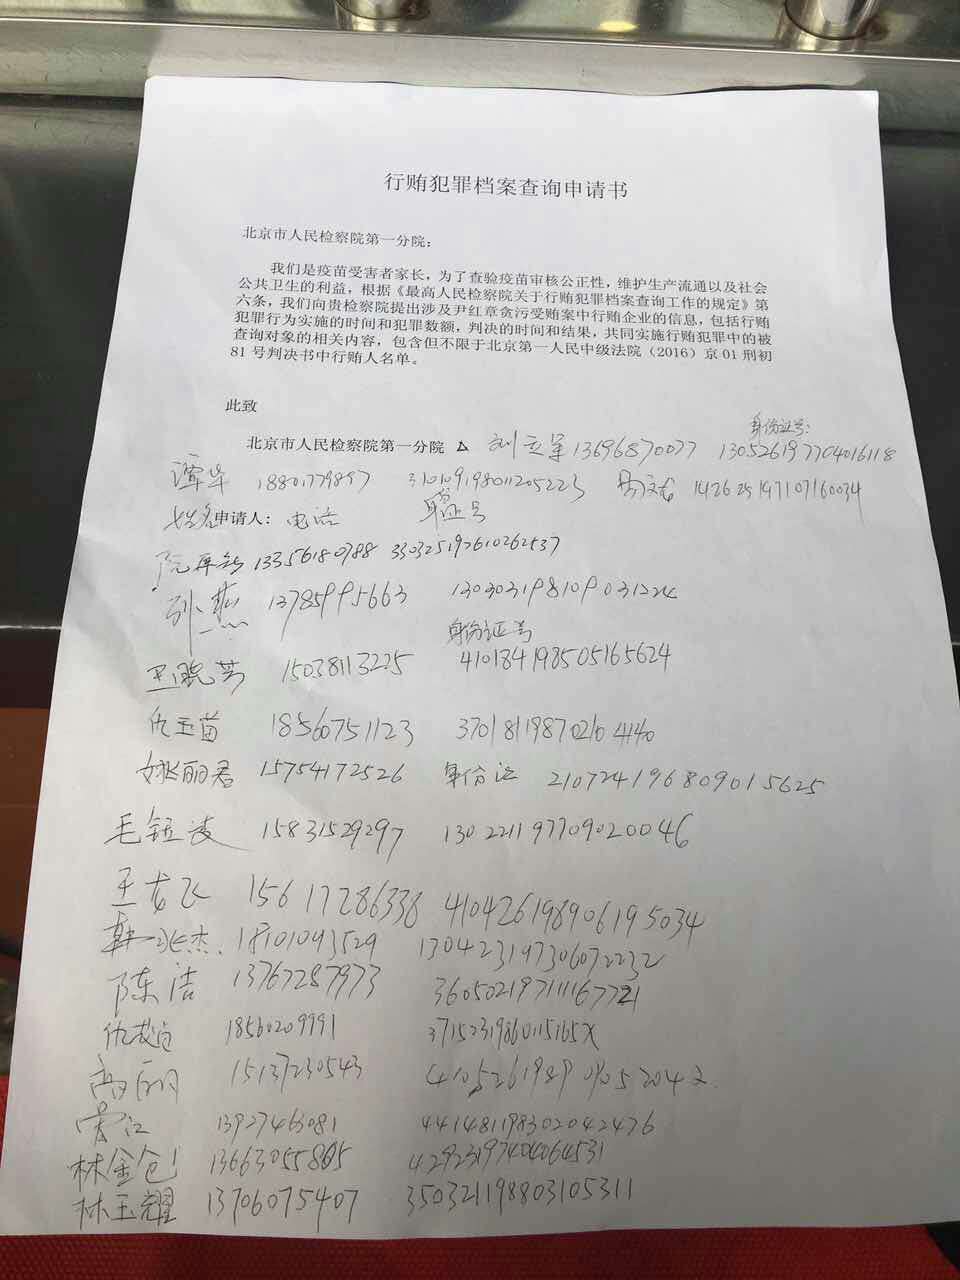 行贿犯罪档案查询申请书
北京市人民检察院第一分院：
我们是疫苗受害者家长，为了查验疫苗审核公正性，维护生产流通以及社会
公共卫生的利益，根据《最高人民检察院关于行贿犯罪档案查询工作的规定》第
六条，我们向贵检察院提出涉及尹红章贪污受贿案中行贿企业的信息，包括行贿
犯罪行为实施的时间和犯罪数额，判决的时间和结果，共同实施行贿犯罪中的被
查询对象的相关内容，包含但不限于北京第一人民中级法院（2016）京 01 刑初
81 号判决书中行贿人名单。
此致
身份证号：
北京市人民检察院第一分院 13696870077 130526197704016118
谭华 18801779897 310109198011205223 142625197107160034
姓名 申请人： 电话 身份证号
13356180788 330325197610262537
孙燕 13785995663 130303198109031224
身份证号
15038113225 410184198505165624
仇玉苗 18560751123 370181198702104140
姚丽君 15754172526 身份证 210724196809015625
毛 凌 15831529297 130221197709020046
王龙飞 15617286338 410426198906195034
韩 杰 18101093529 130423197306072232
陈洁 13767287973
仇 18560209991 37152319860115165X
高 15137230543
常江 13927463081 441481198302042476
林金仓 13663055805
林玉耀 13706075407 350321198803105311